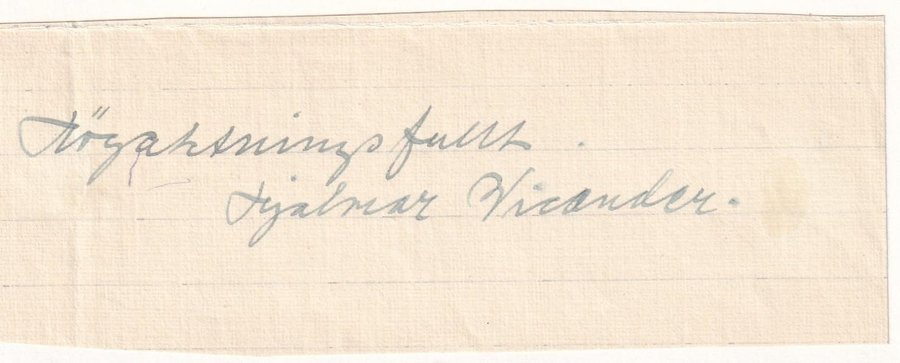 Högaktningsfullt.
Hjalmar Wicander.